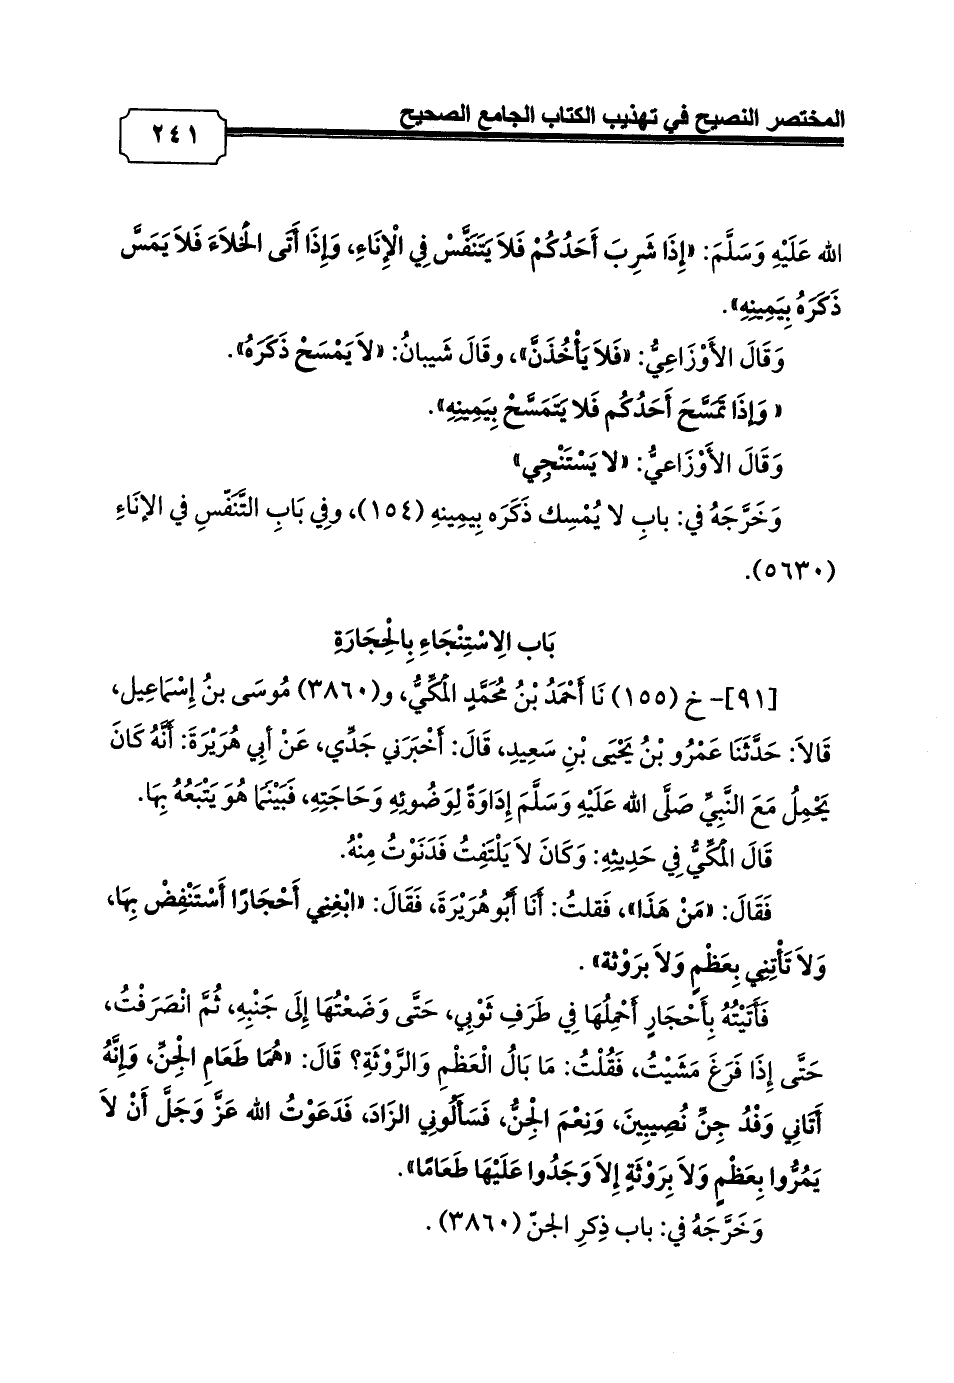 المختصر النصيح في تهذيب الكتاب الجامع الصحيح
٢٤١
الله عَلَيْهِ وَسَلَّمَ: «إِذَا شَرِبَ أَحَدُكُمْ فَلاَ يَتَنَفَّسْ فِي الْإِنَاءِ، وَإِذَا أَتَى الْخَلاَءَ فَلاَ يَمَسَّ
ذَكَرَهُ بِيَمِينِهِ».
وَقَالَ الأَوْزَاعِيُّ: «فَلاَ يَأْخُذَنَّ»، وقَالَ شَيبانُ: «لاَ يَمْسَحْ ذَكَرَهُ».
« وَإِذَا تَمَسَّحَ أَحَدُكُم فَلا يَتَمَسَّحْ بِيَمِينِهِ».
وَقَالَ الأَوْزَاعيُّ: «لا يَسْتَنْجِي»
وَخَرَّجَهُ في: بابِ لا يُمْسِك ذَكَرَه بِيمِينهِ (١٥٤)، وفِي بَابِ التَّنَفّسِ في الإنَاءِ
(٥٦٣٠).
بَاب الِاسْتِنْجَاءِ بِالْحِجَارَةِ
[٩١]- خ (١٥٥) نَا أَحْمَدُ بْنُ مُحَمَّدٍ الْمَكِّيُّ، و(٣٨٦٠) مُوسَى بنُ إِسْمَاعِيل،
قَالاَ: حَدَّثَنَا عَمْرُو بْنُ يَحْيَى بْنِ سَعِيدِ، قَالَ: أَخْبَرَني جَدِّي، عَنْ أبي هُرَيْرَةَ: أَنَّهُ كَانَ
يَحْمِلُ مَعَ النَّبِيِّ صَلَّى الله عَلَيْهِ وَسَلَّمَ إِدَاوَةً لِوَضُوئِهِ وَحَاجَتِهِ، فَبَيْنَمَا هُوَ يَتْبَعُهُ بِهَا.
قَالَ الْمَكِّيُّ فِي حَدِيثِهِ: وَكَانَ لاَ يَلْتَفِتُ فَدَنَوْتُ مِنْهُ.
فَقَالَ: «مَنْ هَذَا»، فَقلتُ: أَنَا أَبُو هُرَيْرَةَ، فَقَالَ: «ابْغِنِي أَحْجَارًا أَسْتَنْفِضْ بِهَا،
وَلاَ تَأْتِنِي بِعَظْمٍ وَلاَ بَروْثة» .
فَأَتَيْتُهُ بِأَحْجَارٍ أَحْمِلُهَا فِي طَرَفِ ثَوْبِي، حَتَّى وَضَعْتُهَا إِلَى جَنْبِهِ، ثُمَّ انْصَرَفْتُ،
حَتَّى إِذَا فَرَغَ مَشَيْتُ، فَقُلْتُ: مَا بَالُ الْعَظْمِ وَالرَّوْثَةِ؟ قَالَ: «هُمَا طَعَامِ الْجِنِّ، وَإِنَّهُ
أَتَانِي وَفْدُ جِنِّ نُصِيبِينَ، وَنِعْمَ الْجِنُّ، فَسَأَلُونِي الزَّادَ، فَدَعَوْتُ الله عَزَّ وَجَلَّ أَنْ لاَ
يَمُرُّوا بِعَظْمٍ وَلاَ بِرَوْثَةٍ إِلاَ وَجَدُوا عَلَيْهَا طَعَامًا».
وَخَرَّجَهُ في: باب ذِكرِ الجنّ (٣٨٦٠) .